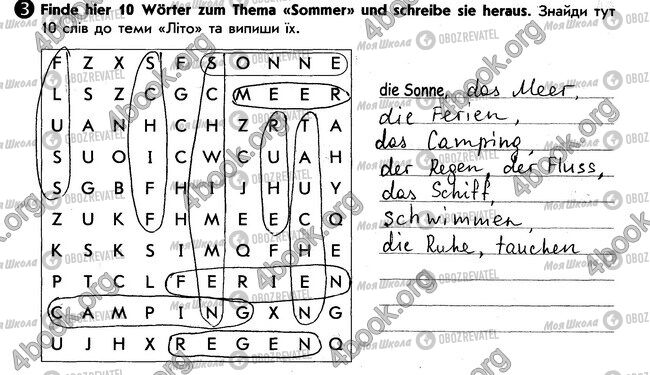 3 Finde hier 10 Wörter zum Thema «Sommer» und schreibe sie heraus. Знайди тут
10 слів до теми «Літо» та випиши їх.
F Z X S F S O N N E
L S Z C G C M E E R
U A N H C H Z R T A
S U O I C W C U A H
S G B F H I J H U Y
Z U K F H M E E C Q
K S K S I M Q F H E
P T C L F E R I E N
C A M P I N G X N G
U J H X R E G E N Q
die Sonne, das Meer,
die Ferien,
das Camping,
der Regen, der Fluss,
das Schiff,
schwimmen,
die Ruhe, tauchen
4book.org
Моя Школа
OBOZREVATEL